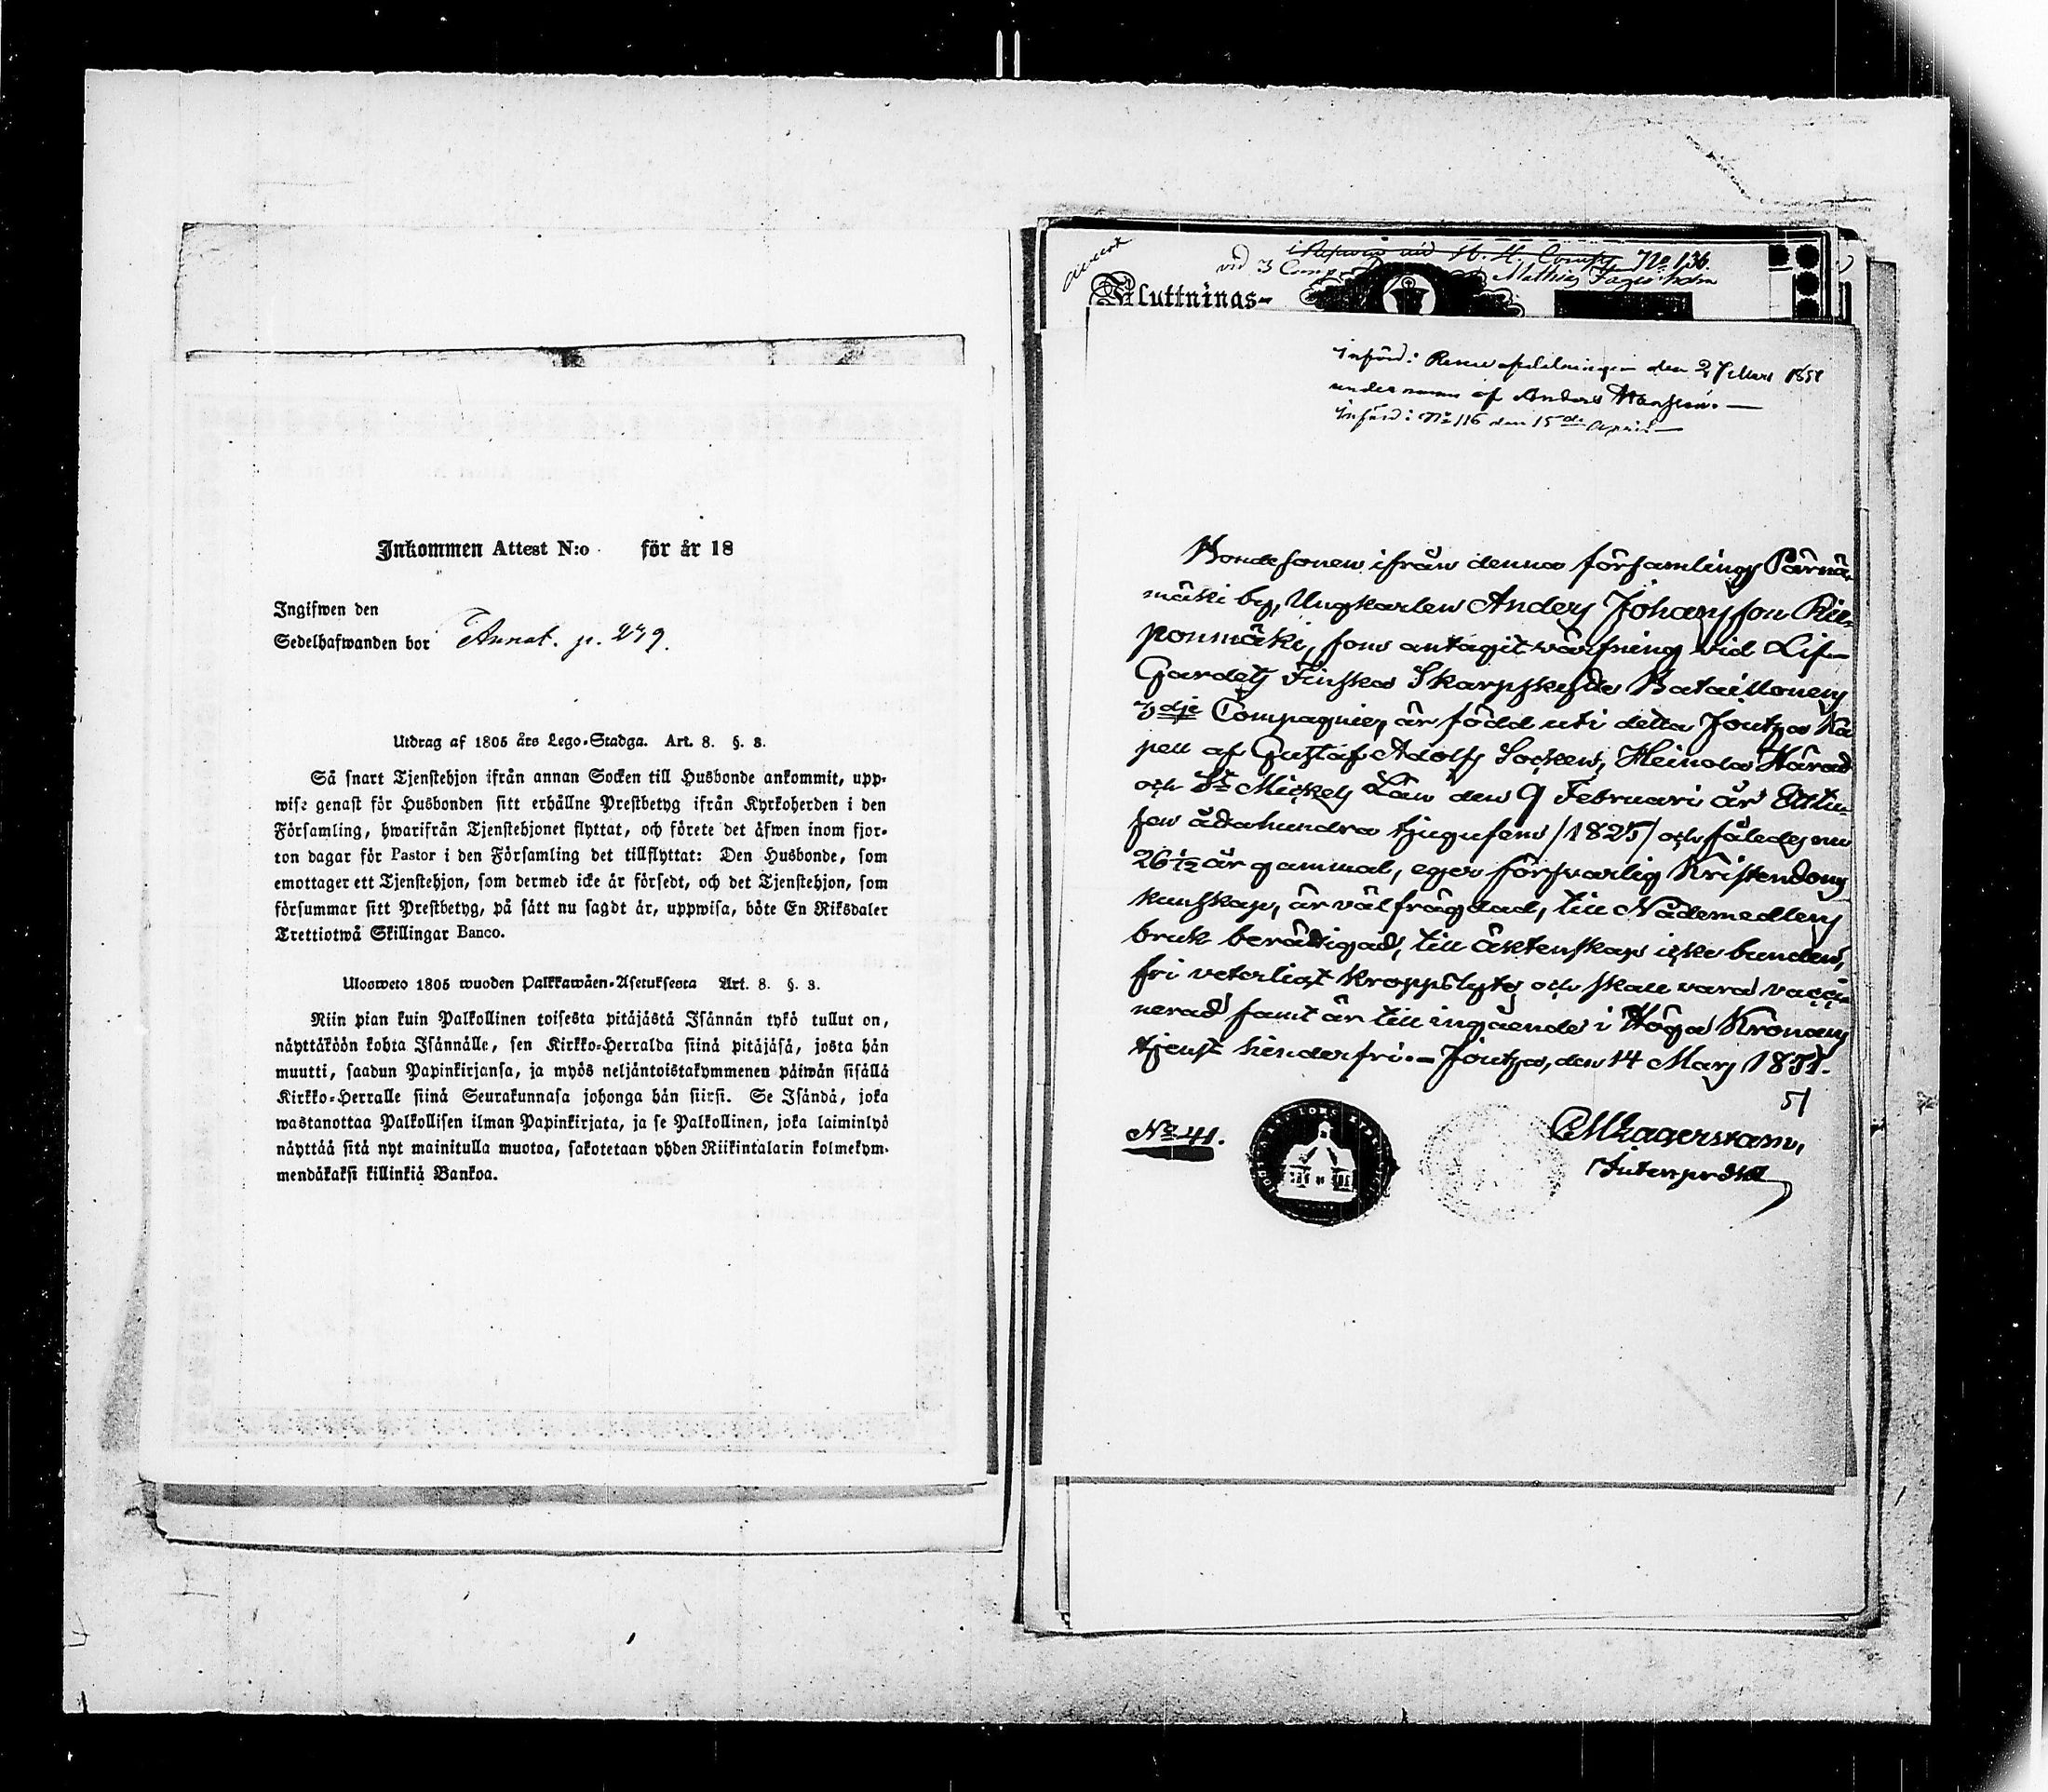 Inkommen Attest N:o för år 18
Ingifwen den
Sedelhafwanden bor Annat. p. 249.
Utdrag af 1805 års Lego-Stadga. Art. 8. §. 8.
Så snart Tjenstehjon ifrån annan Socken till Husbonde ankommit, upp-
wise genast för Husbonden sitt erhållne Prestbetyg ifrån Kyrkoherden i den
Församling, hwarifrån Tjenstehjonet flyttat, och förete det äfwen inom fjor-
ton dagar för Pastor i den Församling det tillflyttat: Den Husbonde, som
emottager ett Tjenstehjon, som dermed icke är försedt, och det Tjenstehjon, som
försummar sitt Prestbetyg, på sätt nu sagdt är, uppwisa, böte En Riksdaler
Trettiotwå Skillingar Banco.
Ulosweto 1805 wuoden Palkkawäen-Asetuksesta Art. 8. §. 8.
Niin pian kuin Palkollinen toisesta pitäjästä Isännän tykö tullut on,
näyttäköön kohta Isännälle, sen Kirkko-Herralda siinä pitäjäsä, josta hän
muutti, saadun Papinkirjansa, ja myös neljäntoistakymmenen päiwän sisällä
Kirkko-Herralle siinä Seurakunnasa johonga hän siirsi. Se Isändä, joka
wastanottaa Palkollisen ilman Papinkirjata, ja se Palkollinen, joka laiminlyö
näyttää sitä nyt mainitulla muotoa, sakotetaan yhden Riikintalarin kolmekym-
mendäkaksi killinkiä Bankoa.
vid H. K. Comp. No 136.
vid 3 Comp. Mathias
Flyttnings-
införd: den 27 Mars 1851
under namn af Anders
införd: No 116 den 15de April
Bondesonen ifrån denna församlings Pärnä-
mäki by, Ungkarlen Anders Johansson Kie-
ponmäki, som antagit värfning vid Lif-
Gardets Finska Skarpskytte Bataillonens
3dje Compagnie, är född uti detta Joutza Ka
pell af Gustaf Adolfs Socken, Heinola Härad
och St Mickels Län den 9 Februari år Ettu-
sen ådahundra tjugufem /1825/ och således nu
26 1/12 år gammal, eger försvarlig Kristendoms
kunskap, är väl frägdad, till Nådemedlens
bruk berättigad, till äktenskap icke bunden,
fri veterligt kroppslyte och skall vara vacci-
nerad samt är till ingående i Höga Kronans
tjenst hinderfri.- Joutza, den 14 Mars 1851.
51
No 41.
Lagerstam,